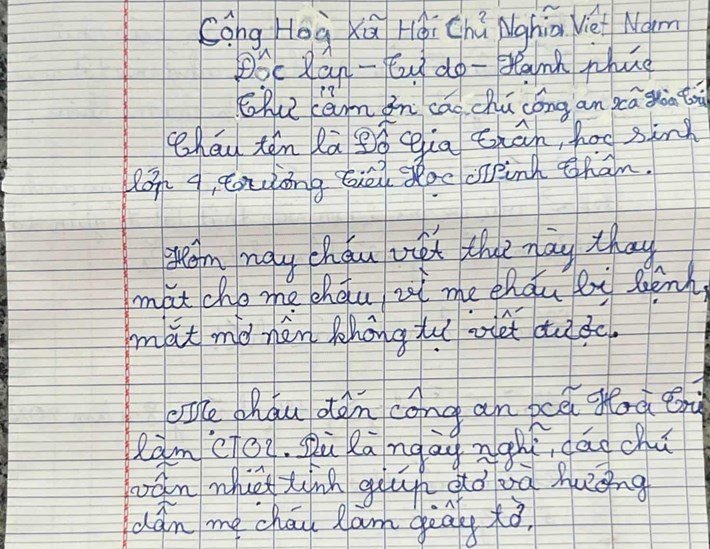 Cộng Hoà Xiã Hội Chủ Nghĩa Việt Nam
Độc lập - Tự do - Hạnh phúc
Thư cảm ơn các chú công an xã Hoà Trí
Cháu tên là Đỗ Gia Trân, học sinh
lớp 4, trường Tiểu Học Minh Thân.
Hôm nay cháu viết thư này thay
mặt cho mẹ cháu, vì mẹ cháu bị bệnh,
mắt mờ nên không tự viết được.
Mẹ cháu đến công an xã Hoà Trí
làm CT01. Dù là ngày nghỉ, các chú
vẫn nhiệt tình giúp đỡ và hướng
dẫn mẹ cháu làm giấy tờ.